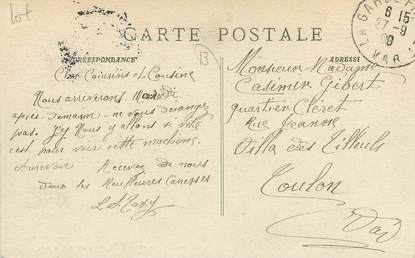 lot
CARTE POSTALE
CORRESPONDANCE
ADRESSE
13
LA GARDE
6 15
27-9
09
VAR
Cher Cousins et Cousine
Nous arriverons Mardi
après demain - ne vous dérangez
pas. Si nous y allons si vite
c'est pour voir cette machine.
Aurevoir Recevez de nous
deux les Meilleures Caresses
Monsieur Madame
Casimir Gibert
quartier Claret
Rue Jeanne
Villa des Tilleuls
Toulon
Var